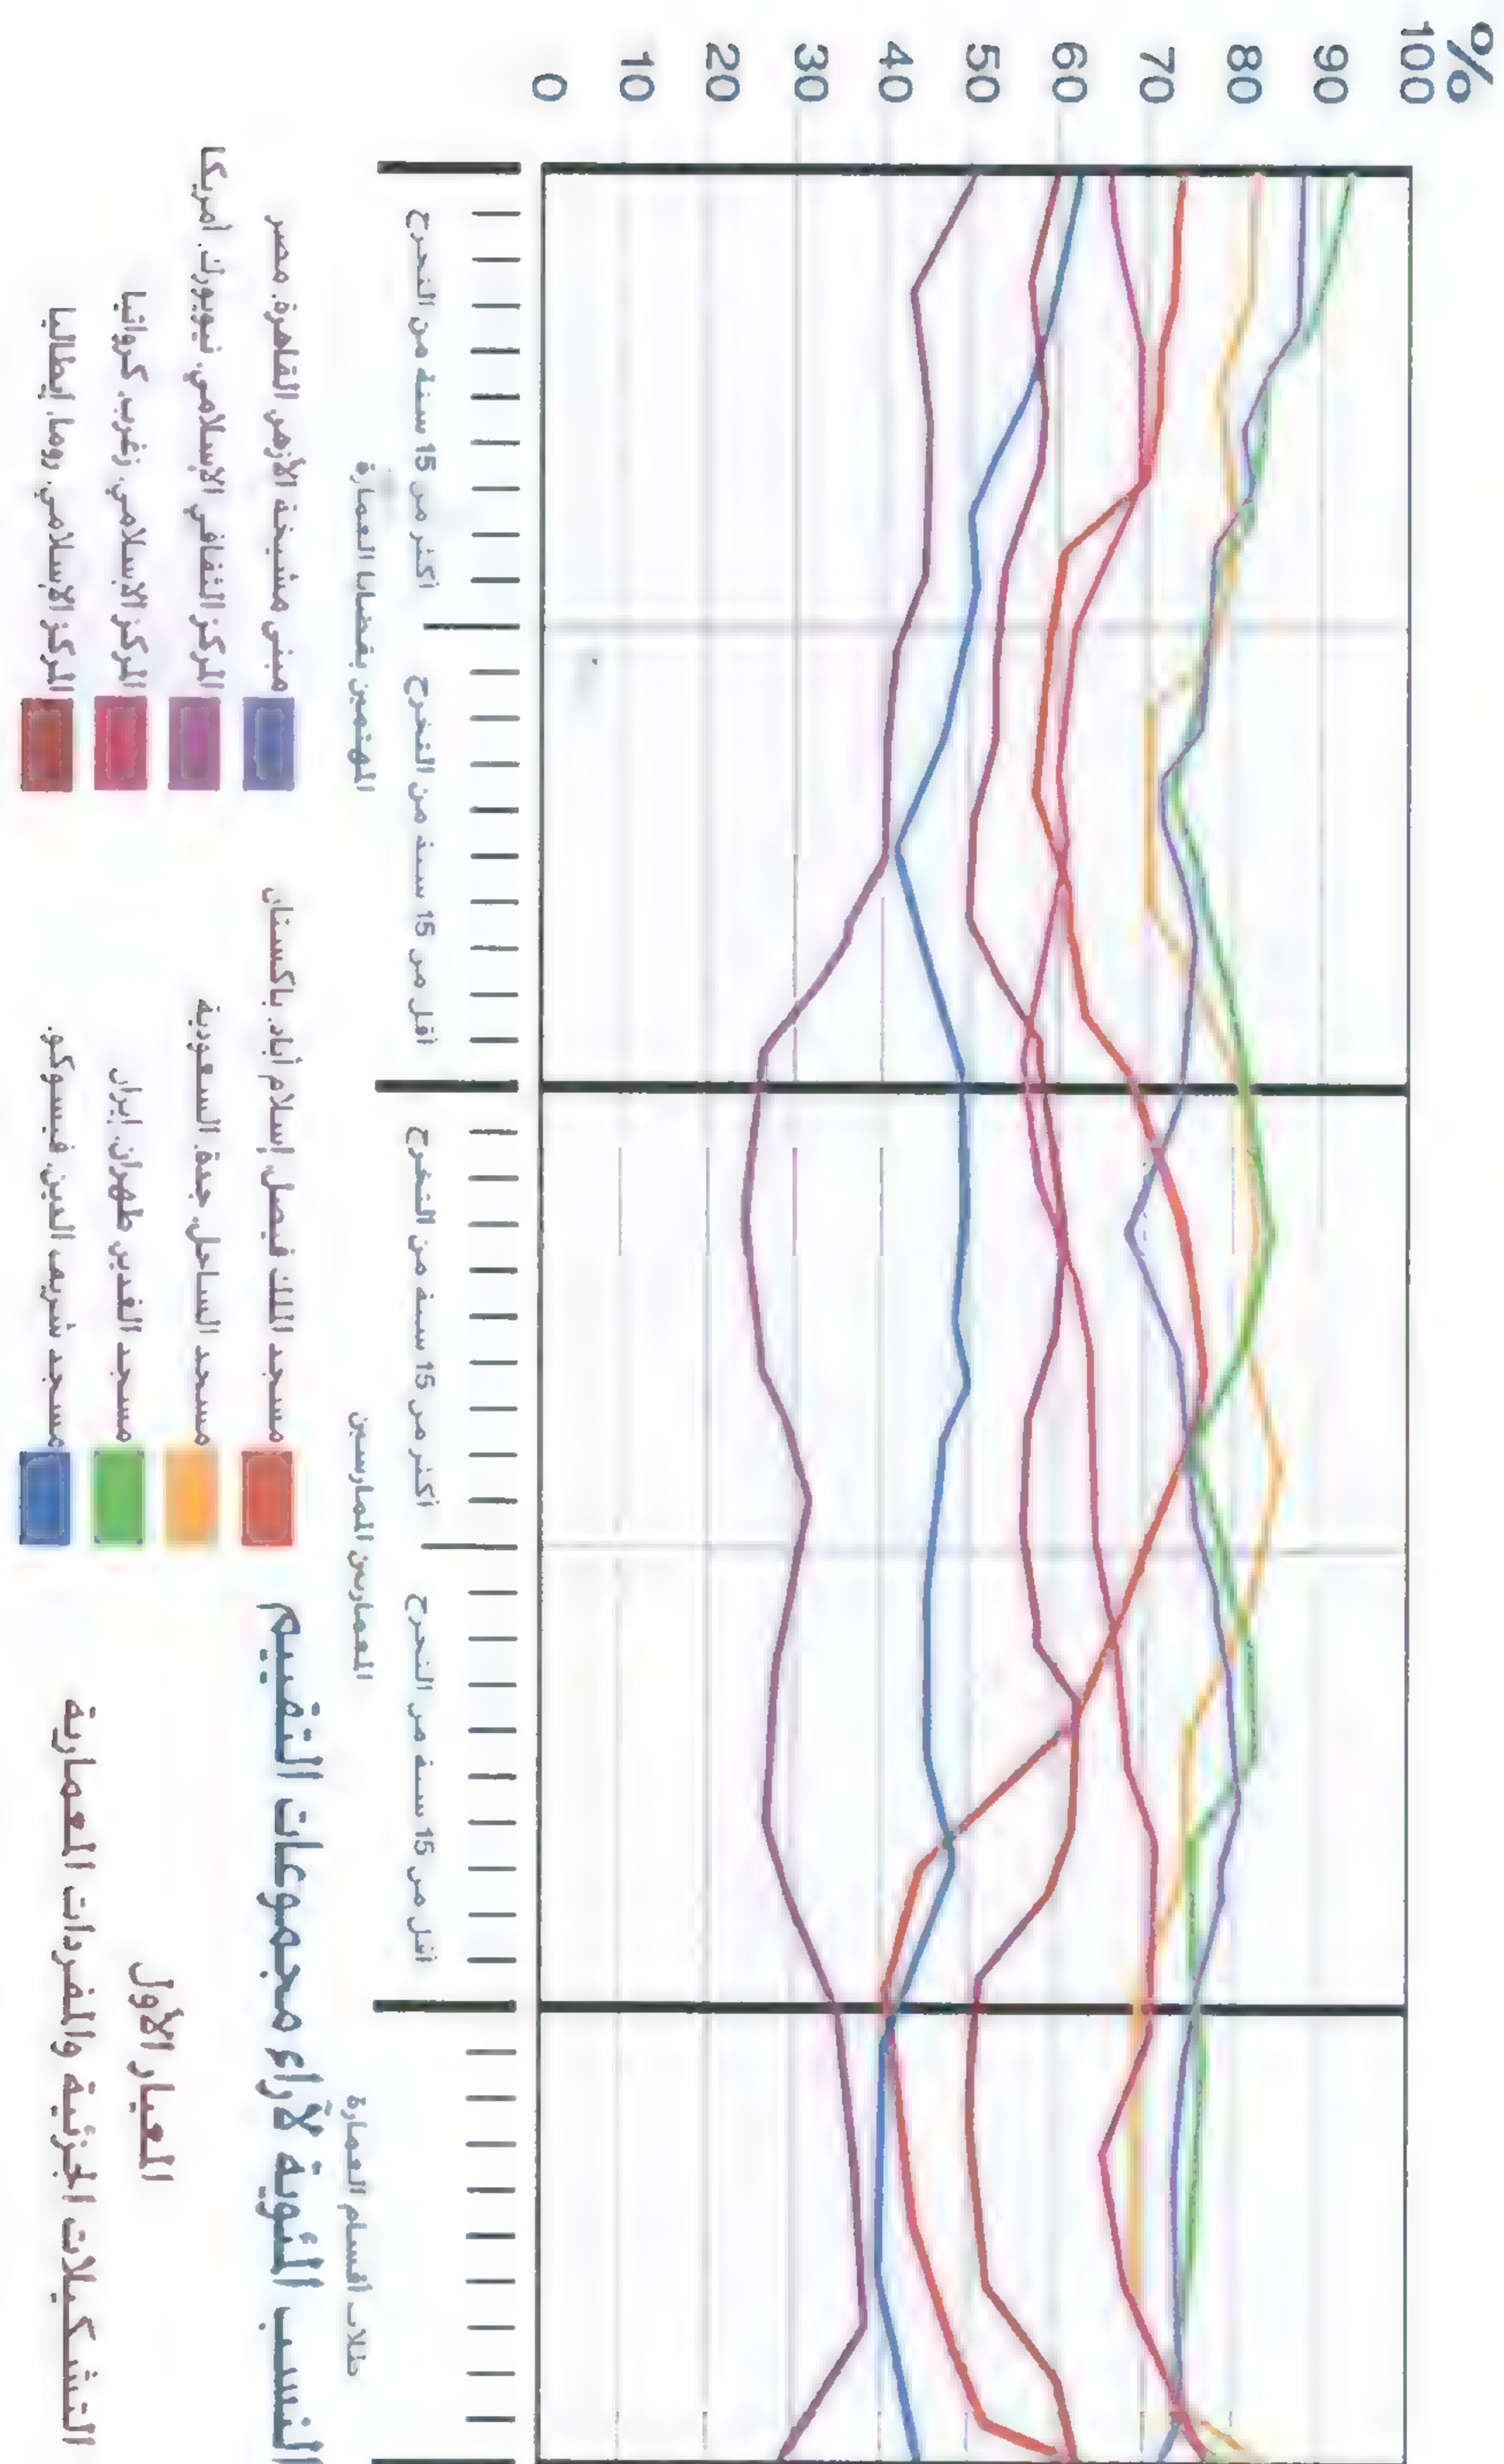 %
100
90
80
70
60
50
40
30
20
10
0
أكثر من 15 سنة من التخرج
أقل من 15 سنة من التخرج
أكثر من 15 سنة من التخرج
أقل من 15 سنة من التخرج
المهتمين بقضايا العمارة
المعماريين الممارسين
طلاب أقسام العمارة
مبنى مشيخة الأزهر، القاهرة، مصر
المركز الثقافي الإسلامي، نيويورك، أمريكا
المركز الإسلامي، زغرب، كرواتيا
المركز الإسلامي، روما، إيطاليا
مسجد الملك فيصل، إسلام أباد، باكستان
مسجد الساحل، جدة، السعودية
مسجد الغدير، طهران، إيران
مسجد شريف الدين، فيسوكو.
النسب المئوية لآراء مجموعات التقييم
المعيار الأول
التشكيلات الجزئية والمفردات المعمارية